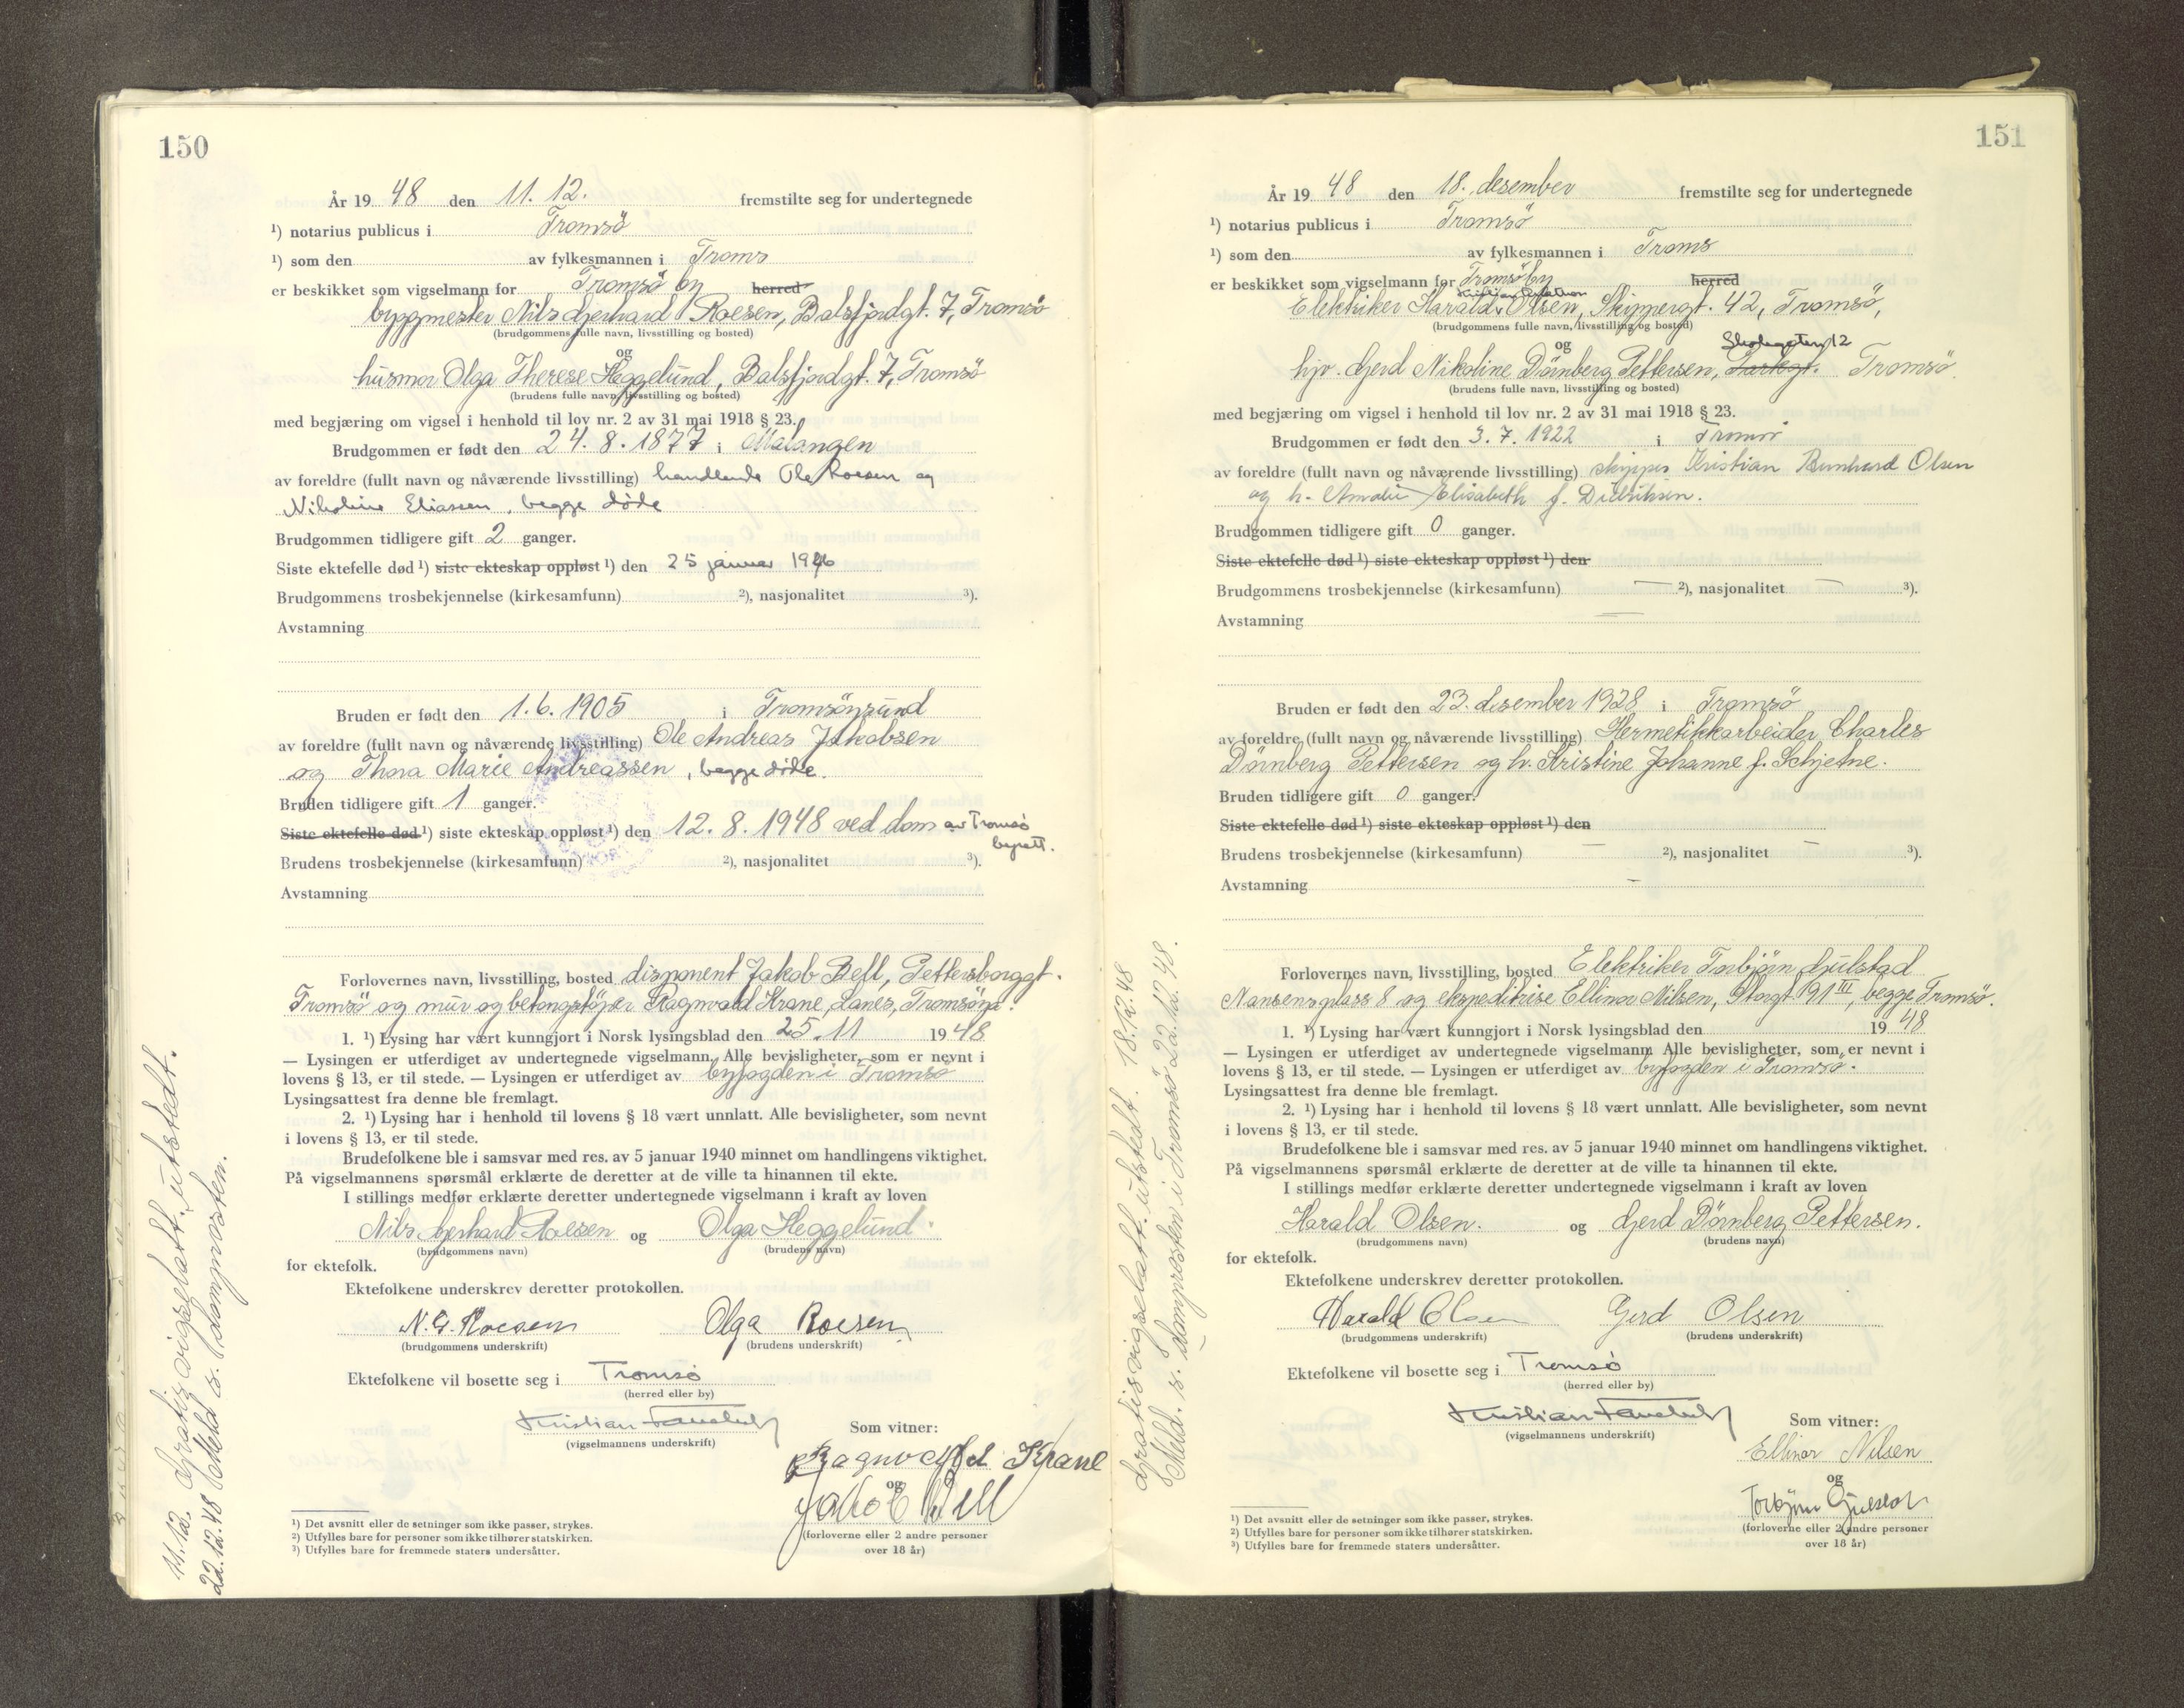 150
År 19 48 den 11. 12. fremstilte seg for undertegnede
¹) notarius publicus i Tromsö
¹) som den av fylkesmannen i Troms
er beskikket som vigselmann for Tromsö by herred
byggmester Nils Gjerhard Roesen, Balsfjordgt. 7, Tromsö
(brudgommens fulle navn, livsstilling og bosted)
og
husmor Olga Therese Heggelund, Balsfjordgt. 7, Tromsö
(brudens fulle navn, livsstilling og bosted)
med begjæring om vigsel i henhold til lov nr. 2 av 31 mai 1918 § 23.
Brudgommen er født den 24. 8. 1877 i Malangen
av foreldre (fullt navn og nåværende livsstilling) handlende Ole Roesen og
Nikoline Eliassen, begge døde
Brudgommen tidligere gift 2 ganger.
Siste ektefelle død ¹) siste ekteskap oppløst ¹) den 25 januar 1946
Brudgommens trosbekjennelse (kirkesamfunn) ²), nasjonalitet ³).
Avstamning
Bruden er født den 1. 6. 1905 i Tromsöysund
av foreldre (fullt navn og nåværende livsstilling) Ole Andreas Jakobsen
og Thora Marie Andreassen, begge døde.
Bruden tidligere gift 1 ganger.
Siste ektefelle død ¹) siste ekteskap oppløst ¹) den 12. 8. 1948 ved dom av Tromsø
byrett.
Brudens trosbekjennelse (kirkesamfunn) ²), nasjonalitet ³).
Avstamning
Forlovernes navn, livsstilling, bosted disponent Jakob Bell, Pettersborggt.
Tromsö og mur og betongstöper Ragnvald Krane, Lanes, Tromsöya.
1. ¹) Lysing har vært kunngjort i Norsk lysingsblad den 25. 11 19 48
— Lysingen er utferdiget av undertegnede vigselmann. Alle bevisligheter, som er nevnt i
lovens § 13, er til stede. — Lysingen er utferdiget av byfogden i Tromsö
Lysingsattest fra denne ble fremlagt.
2. ¹) Lysing har i henhold til lovens § 18 vært unnlatt. Alle bevisligheter, som nevnt
i lovens § 13, er til stede.
Brudefolkene ble i samsvar med res. av 5 januar 1940 minnet om handlingens viktighet.
På vigselmannens spørsmål erklærte de deretter at de ville ta hinannen til ekte.
I stillings medfør erklærte deretter undertegnede vigselmann i kraft av loven
Nils Gjerhard Roesen og Olga Heggelund
(brudgommens navn) (brudens navn)
for ektefolk.
Ektefolkene underskrev deretter protokollen.
N. G. Roesen Olga Roesen
(brudgommens underskrift) (brudens underskrift)
Ektefolkene vil bosette seg i Tromsø
(herred eller by)
Kristian
(vigselmannens underskrift)
Som vitner:
Ragnvald Krane
og
Jakob Bell
(forloverne eller 2 andre personer
over 18 år)
¹) Det avsnitt eller de setninger som ikke passer, strykes.
²) Utfylles bare for personer som ikke tilhører statskirken.
³) Utfylles bare for fremmede staters undersåtter.
11.12. Gratis vigselatt. utstedt.
22.12.48 Meld. s. domprosten.
151
År 19 48 den 18. desember fremstilte seg for undertegnede
¹) notarius publicus i Tromsö
¹) som den av fylkesmannen i Troms
er beskikket som vigselmann for Tromsö by herred
Elektriker Harald Olsen, Skippergt. 42, Tromsö,
(brudgommens fulle navn, livsstilling og bosted)
og Skolegaten 12
hjv. Gjerd Nikoline Dörnberg Pettersen, Parkgt. Tromsö
(brudens fulle navn, livsstilling og bosted)
med begjæring om vigsel i henhold til lov nr. 2 av 31 mai 1918 § 23.
Brudgommen er født den 3. 7. 1922 i Tromsö
av foreldre (fullt navn og nåværende livsstilling) skipper Kristian Bernhard Olsen
og h. Amalie Elisabeth f. Didriksen.
Brudgommen tidligere gift 0 ganger.
Siste ektefelle død ¹) siste ekteskap oppløst ¹) den
Brudgommens trosbekjennelse (kirkesamfunn) — ²), nasjonalitet — ³).
Avstamning —
Bruden er født den 23. desember 1928 i Tromsö
av foreldre (fullt navn og nåværende livsstilling) Hermetikkarbeider Charles
Dörnberg Pettersen og h. Kristine Johanne f. Schjetne.
Bruden tidligere gift 0 ganger.
Siste ektefelle død ¹) siste ekteskap oppløst ¹) den
Brudens trosbekjennelse (kirkesamfunn) — ²), nasjonalitet — ³).
Avstamning —
Forlovernes navn, livsstilling, bosted Elektriker Torbjörn Gjulstad
Nansens plass 8 og ekspeditrise Ellinor Nilsen, Storgt 91 III, begge Tromsö.
1. ¹) Lysing har vært kunngjort i Norsk lysingsblad den 19 48
— Lysingen er utferdiget av undertegnede vigselmann Alle bevisligheter, som er nevnt i
lovens § 13, er til stede. — Lysingen er utferdiget av byfogden i Tromsö.
Lysingsattest fra denne ble fremlagt.
2. ¹) Lysing har i henhold til lovens § 18 vært unnlatt. Alle bevisligheter, som nevnt
i lovens § 13, er til stede.
Brudefolkene ble i samsvar med res. av 5 januar 1940 minnet om handlingens viktighet.
På vigselmannens spørsmål erklærte de deretter at de ville ta hinannen til ekte.
I stillings medfør erklærte deretter undertegnede vigselmann i kraft av loven
Harald Olsen. og Gjerd Dörnberg Pettersen.
(brudgommens navn) (brudens navn)
for ektefolk.
Ektefolkene underskrev deretter protokollen.
Harald Olsen Gjerd Olsen
(brudgommens underskrift) (brudens underskrift)
Ektefolkene vil bosette seg i Tromsø
(herred eller by)
Kristian
(vigselmannens underskrift)
Som vitner:
Ellinor Nilsen
og
Torbjørn
(forloverne eller 2 andre personer
over 18 år)
¹) Det avsnitt eller de setninger som ikke passer, strykes.
²) Utfylles bare for personer som ikke tilhører statskirken.
³) Utfylles bare for fremmede staters undersåtter.
Gratis vigselatt. utstedt. 18.12.48
Meld. s. domprosten i Tromsö 22.12.48.